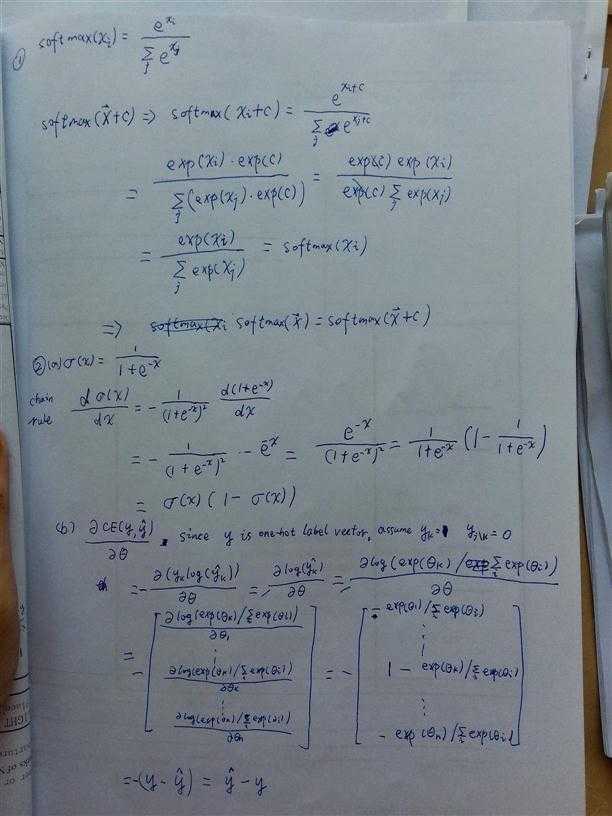 ① softmax(x_i) = e^{x_i} / Σ_j e^{x_j}
softmax(x⃗+c) => softmax(x_i+c) = e^{x_i+c} / Σ_j e^{x_j+c}
= exp(x_i)·exp(c) / Σ_j (exp(x_j)·exp(c)) = exp(c) exp(x_i) / exp(c) Σ_j exp(x_j)
= exp(x_i) / Σ_j exp(x_j) = softmax(x_i)
=> softmax(x_i softmax(x⃗) = softmax(x⃗+c)
②(a) σ(x) = 1 / (1+e^{-x})
chain rule dσ(x)/dx = - 1/(1+e^{-x})² d(1+e^{-x})/dx
= - 1/(1+e^{-x})² · -e^{-x} = e^{-x}/(1+e^{-x})² = 1/(1+e^{-x}) (1 - 1/(1+e^{-x}))
= σ(x) (1 - σ(x))
(b) ∂CE(y, ŷ)/∂θ . since y is one-hot label vector, assume y_k = 1 y_{i\k} = 0
= - ∂(y_k log(ŷ_k))/∂θ = - ∂log(ŷ_k)/∂θ = - ∂log(exp(θ_k) / Σ_i exp(θ_i))/∂θ
= - [ ∂log(exp(θ_k)/Σ_i exp(θ_i))/∂θ_1 ⋮ ∂log(exp(θ_k)/Σ_i exp(θ_i))/∂θ_k ⋮ ∂log(exp(θ_k)/Σ_i exp(θ_i))/∂θ_n ] = - [ - exp(θ_1)/Σ_i exp(θ_i) ⋮ 1 - exp(θ_k)/Σ_i exp(θ_i) ⋮ - exp(θ_n)/Σ_i exp(θ_i) ]
= -(y - ŷ) = ŷ - y